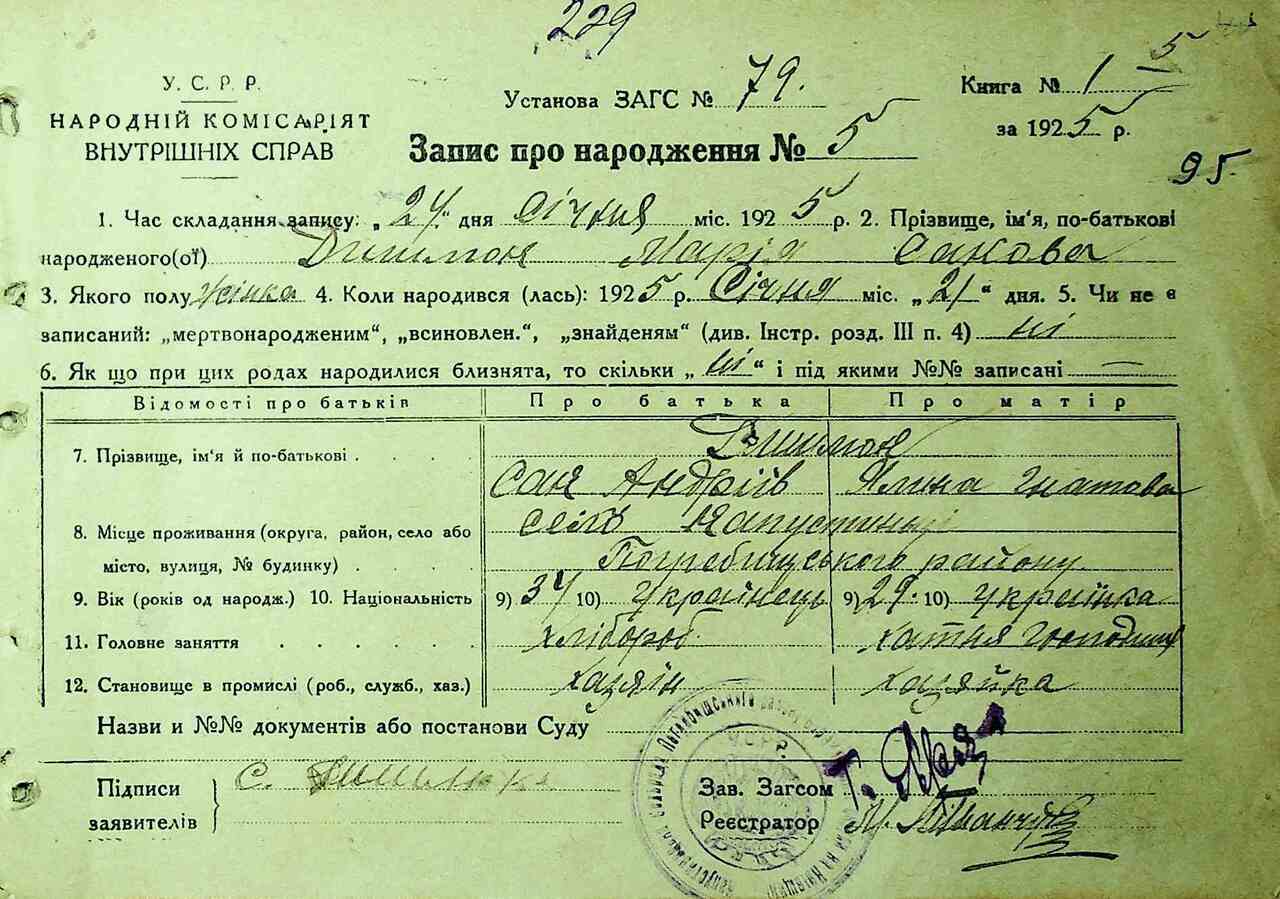 229
У. С. Р. Р.
НАРОДНІЙ КОМІСАРІЯТ
ВНУТРІШНІХ СПРАВ
Установа ЗАГС № 79.
Книга № 1 5
за 1925 р.
Запис про народження № 5
95.
1. Час складання запису: „24“ дня Січня міс. 1925 р. 2. Прізвище, ім'я, по-батькові
народженого(ої) Дишмон Марія Санова
3. Якого полу жінка 4. Коли народився (лась): 1925 р. Січня міс. „21“ дня. 5. Чи не є
записаний: „мертвонародженим“, „всиновлен.“, „знайденям“ (див. Інстр. розд. III п. 4) ні
6. Як що при цих родах народилися близнята, то скільки „ні“ і під якими №№ записані —
Відомості про батьків Про батька Про матір
7. Прізвище, ім'я й по-батькові . . . . Дишмон
Сан Андріїв Ялина Гнатова
8. Місце проживання (округа, район, село або село Капустинці
місто, вулиця, № будинку) . . . . Погребищуського району
9. Вік (років од народж.) 10. Національність 9) 34 10) Українець 9) 29. 10) Українка
11. Головне заняття . . . . . хлібороб хатня господиня
12. Становище в промислі (роб., служб., хаз.) хазяїн хазяйка
Назви и №№ документів або постанови Суду
Підписи
заявителів
С.
Зав. Загсом
Реєстратор
У.С.Р.Р.